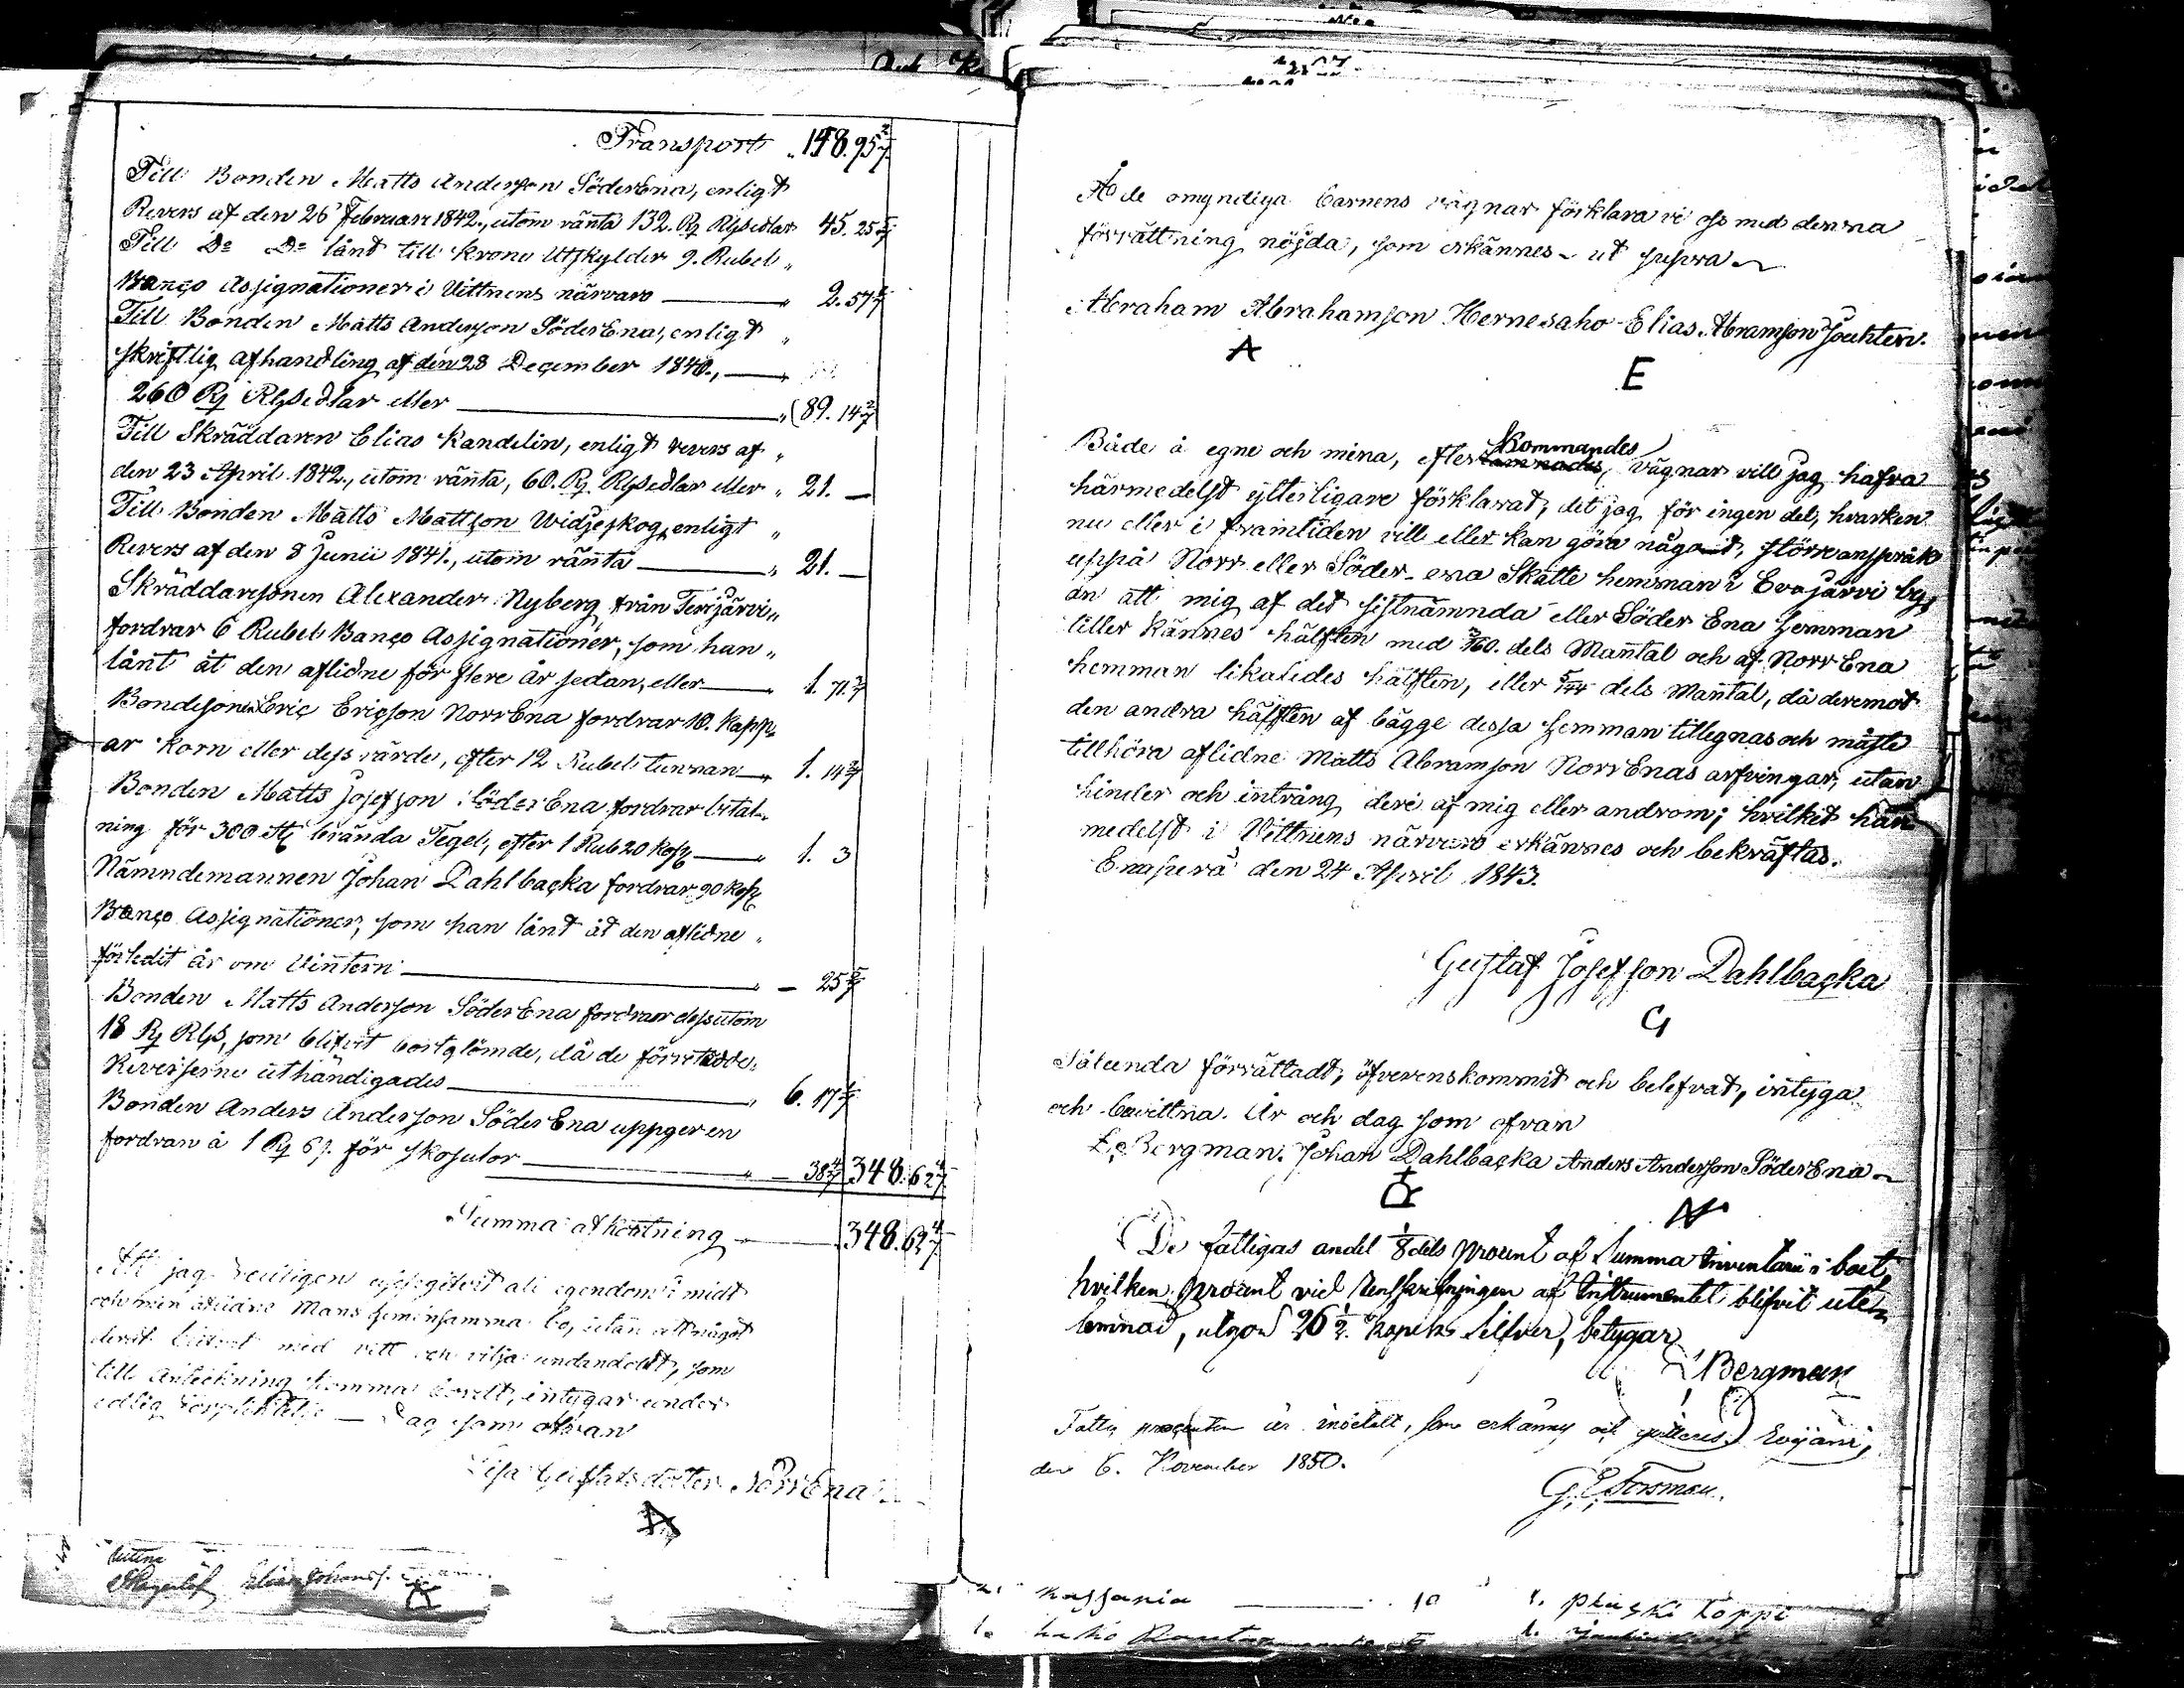 Transport 148. 95 2/7
Till Bonden Matts Anderson SöderEna, enligt
Revers af den 26 Februari 1842., utom ränta 132. Rg Rgsedlar 45. 25 5/7
Till Do Do lånt till Krono Utskylder 9. Rubel
Banco Assignationer i Vittnens närvaro 2. 57 1/7
Till Bonden Matts Anderson SöderEna, enligt
skriftlig afhandling af den 28 December 1840.,
260 Rg Rgsedlar eller 89. 14 2/7
Till Skräddaren Elias Kandelin, enligt revers af
den 23 April 1842., utom ränta, 60. Rg. Rgsedlar eller 21. —
Till Bonden Matts Mattson Widjeskog, enligt
Revers af den 8 Junii 1841., utom ränta 21. —
Skräddaresonen Alexander Nyberg från Terijärvi
fordrar 6 Rubel Banco Assignationer, som han
lånt åt den aflidne för flere år sedan, eller 1. 71 3/7
Bondesonen Eric Ericson NorrEna fordrar 10. Kapp
ar Korn eller dess värde, efter 12 Rubel tunnan 1. 14 2/7
Bonden Matts Josefson SöderEna fordrar betal-
ning för 300 st brända Tegel, efter 1 Rub 20 Kop 1. 3
Nämndemannen Johan Dahlbacka fordrar 90 Kop
Banco Assignationer, som han lånt åt den aflidne
förledit år om Vintern — 25 5/7
Bonden Matts Anderson SöderEna fordrar dessutom
18 Rg Rgs, som blifvit bortglömde, då de förra
Reverserne uthändigades 6. 17 1/7
Bonden Anders Anderson SöderEna uppger en
fordran å 1 Rg 6 s. för skosulor — 38 4/7 348. 62 4/7
Summa afkortning 348. 62 4/7
Att jag redligen uppgifvit all egendom i mitt
och min aflidne Mans gemensamma bo, utan att något
deraf blifvit med vett och vilja undandolt, som
till anteckning komma bordt, intygar under
edlig förpliktelse — Dag som ofvan
Lisa Gustafsdotter NorrEna
Elias Johans.
Å de omyndiga barnens vägnar förklara vi oss med denna
förrättning nöjda, som erkännes - ut supra
Abraham Abrahamson Hernesaho Elias Abramson Jouhten.
A E
Kommandes
Både å egne och mina, efter vägnar vill jag hafva
härmedelst ytterligare förklarat, det jag för ingen del, hvarken
nu eller i framtiden vill eller kan göra något, större anspråk
uppå Norr eller Söder-ena Skatte hemman i Evajärvi by,
än att mig af det sistnämnda eller Söder Ena hemman
tillerkännes hälften med 7/160. dels Mantal och af Norr Ena
hemman likaledes hälften, eller 5/144 dels Mantal, då deremot
den andra hälften af bägge dessa hemman tillegnas och måste
tillhöra aflidne Matts Abramson NorrEnas arfvingar, utan
hinder och intrång deri af mig eller androm; hvilket här
medelst i Vittnens närvaro erkännes och bekräftas.
Enaperä den 24 April 1843.
Gustaf Josefson Dahlbacka
G
Sålunda förrättadt, öfverenskommit och belefvat, intyga
och bevittna. År och dag som ofvan
Bergman. Johan Dahlbacka Anders Anderson SöderEna
De fattigas andel 1/8 dels procent af Summa Inventarii i boet,
hvilken procent vid Renskrifningen af Instrumentet blifvit ute-
lemnad, utgör 26 1/2. kopek Silfver, betygar
Bergman
Fattig procenten är inbetalt, som erkännes och qvitteras. Evijärvi,
den 6. November 1850.
G. E. Forsman.
10